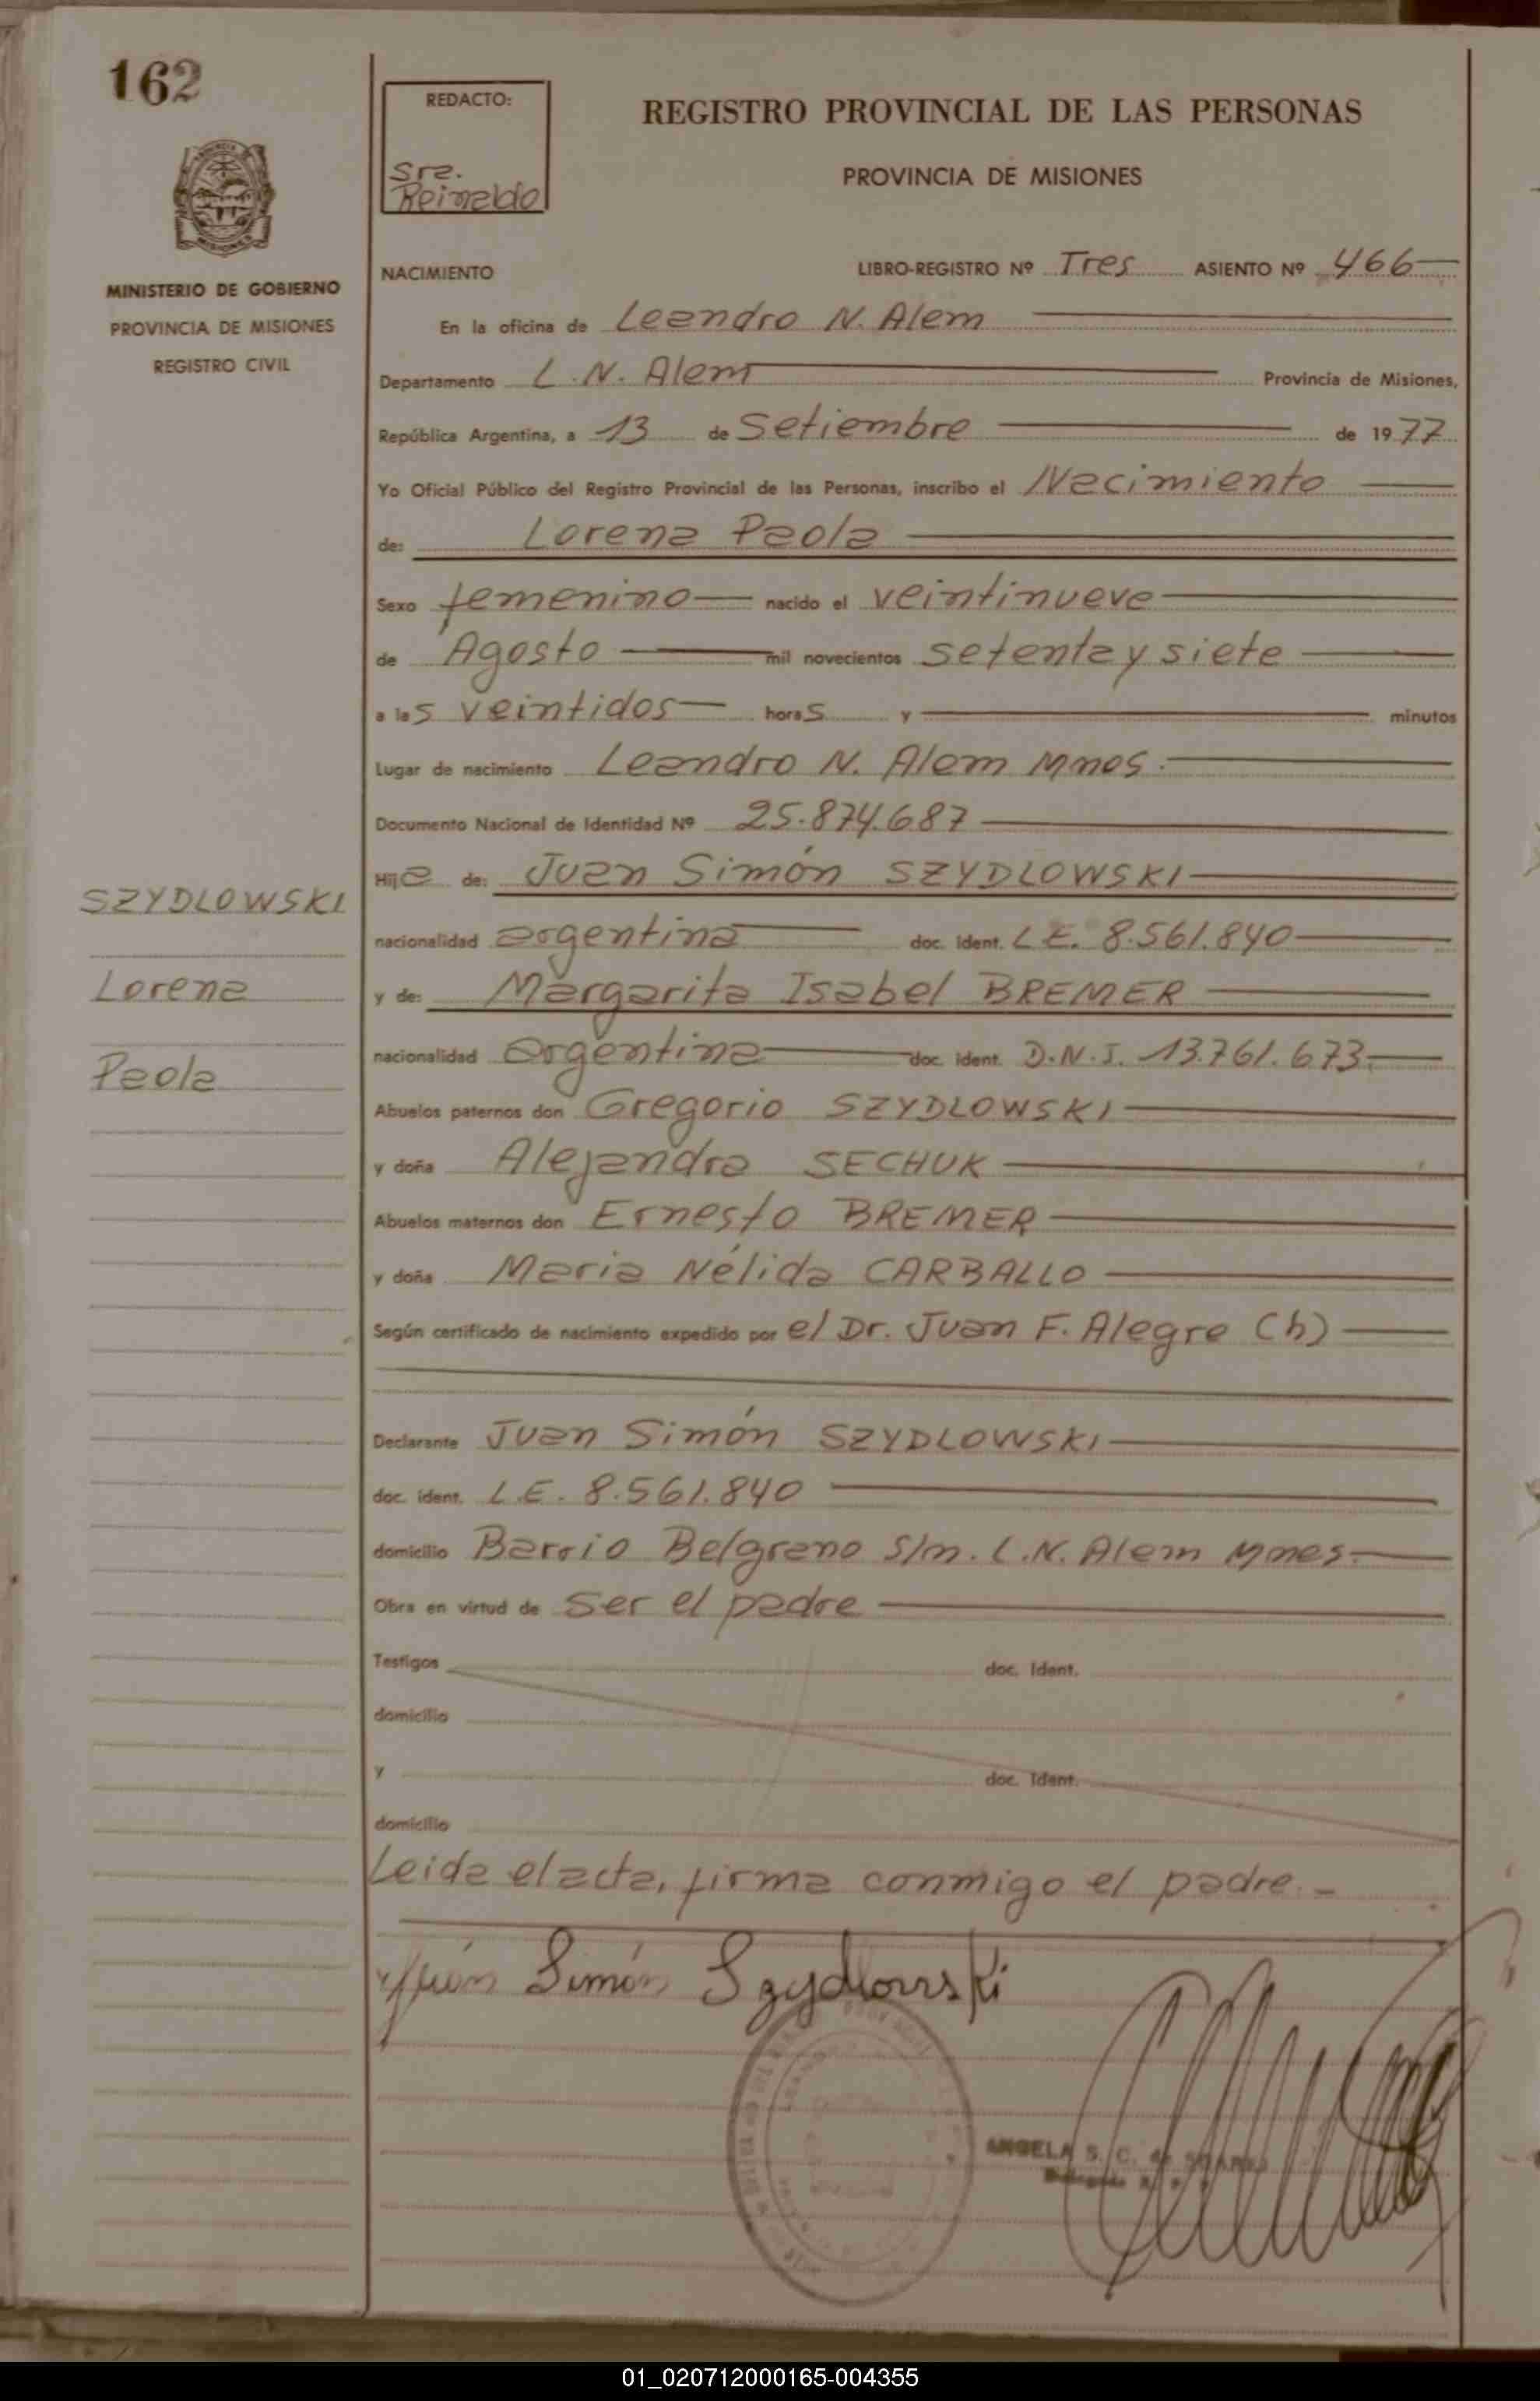 162
REDACTO:
Sra.
Reinaldo
REGISTRO PROVINCIAL DE LAS PERSONAS
PROVINCIA DE MISIONES
MISIONES
MINISTERIO DE GOBIERNO
PROVINCIA DE MISIONES
REGISTRO CIVIL
NACIMIENTO LIBRO-REGISTRO Nº Tres ASIENTO Nº 466
En la oficina de Leandro N. Alem
Departamento L. N. Alem Provincia de Misiones,
República Argentina, a 13 de Setiembre de 1977
Yo Oficial Público del Registro Provincial de las Personas, inscribo el Nacimiento
de: Lorena Paola
Sexo femenino nacido el veintinueve
de Agosto mil novecientos setenta y siete
a las veintidos horas y minutos
Lugar de nacimiento Leandro N. Alem Mnes.
Documento Nacional de Identidad Nº 25.874.687
Hija de: Juan Simón SZYDLOWSKI
nacionalidad argentina doc. ident. L.E. 8.561.840
y de: Margarita Isabel BREMER
nacionalidad argentina doc. ident. D.N.I. 13.761.673.
Abuelos paternos don Gregorio SZYDLOWSKI
y doña Alejandra SECHUK
Abuelos maternos don Ernesto BREMER
y doña Maria Nélida CARBALLO
Según certificado de nacimiento expedido por el Dr. Juan F. Alegre (h)
Declarante Juan Simón SZYDLOWSKI
doc. ident. L.E. 8.561.840
domicilio Barrio Belgrano S/n. L.N. Alem Mnes.
Obra en virtud de ser el padre
Testigos doc. ident.
domicilio
y doc. ident.
domicilio
Leida el acta, firma conmigo el padre.-
Juan Simón Szydlowski
ANGELA S. C. de
SZYDLOWSKI
Lorena
Paola
01_020712000165-004355